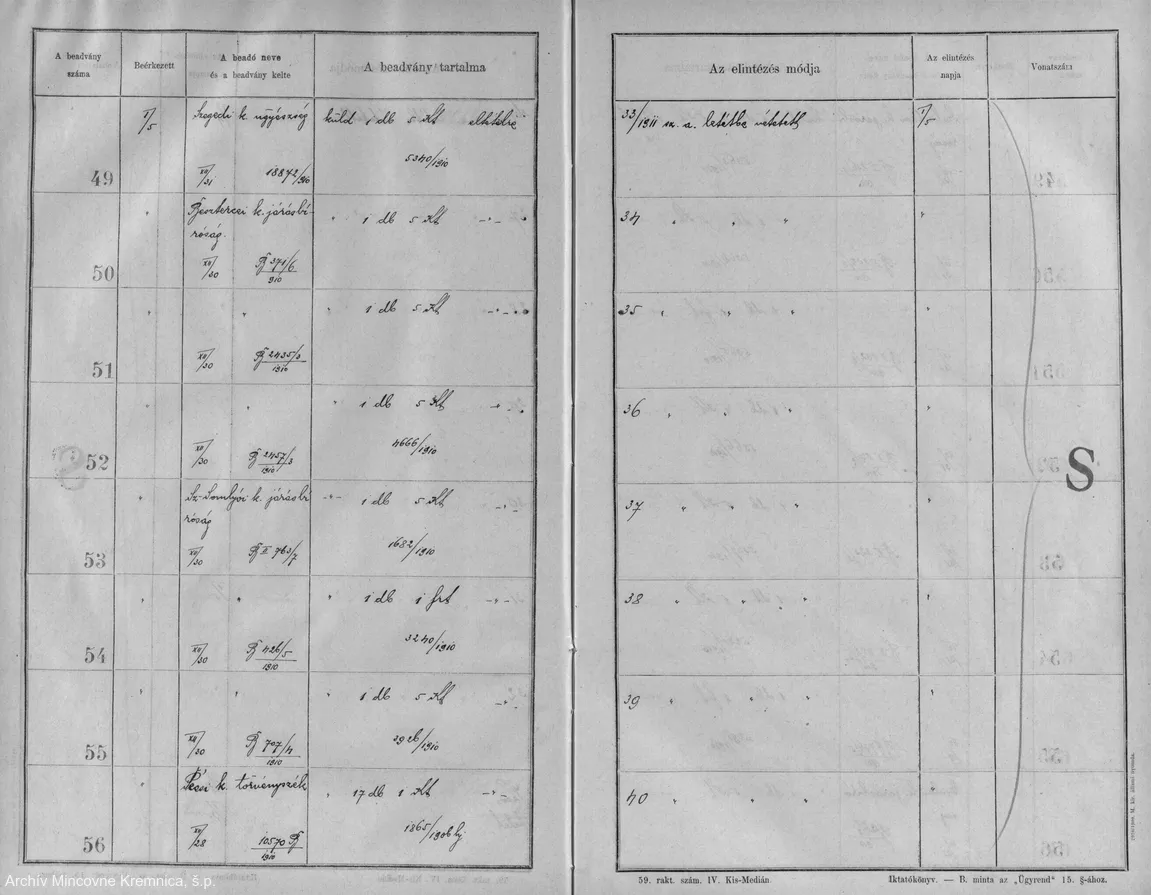 A beadvány száma
Beérkezett
A beadó neve és a beadvány kelte
A beadvány tartalma
Az elintézés módja
Az elintézés napja
Vonatszám
49 I/5 Szegedi k. ügyészség küld 1 db 5 Kt 33/1911 sz. a. letétbe vétetett I/5
XII/31 18872/910 5340/1910
50 " Beszterczei k. járásbí- " 1 db 5 Kt -"- 34 " " " "
róság.
XII/30 B 371/6 1910
51 " " " 1 db 5 Kt -"- 35 " " " "
XII/30 B 2435/3 1910
52 " " " 1 db 5 Kt -"- 36 " " " "
XII/30 B 2457/3 1910 4666/1910
53 " Sz. Somlyói k. járásbí -"- 1 db 5 Kt -"- 37 " " " "
róság
XII/30 B II 763/7 1682/1910
54 " " " 1 db 1 frt -"- 38 " " " " "
XII/30 B 426/5 1910 3240/1910
55 " " " 1 db 5 Kt -"- 39 " " " "
XII/30 B 707/4 1910 3926/1910
56 " Pécsi k. törvényszék " 17 db 1 Kt -"- 40 " " "
XII/28 10570 B 1910 1865/1906
S
59. rakt. szám. IV. Kis-Medián.
Iktatókönyv. — B. minta az „Ügyrend" 15. §-ához.
Archív Mincovne Kremnica, š.p.